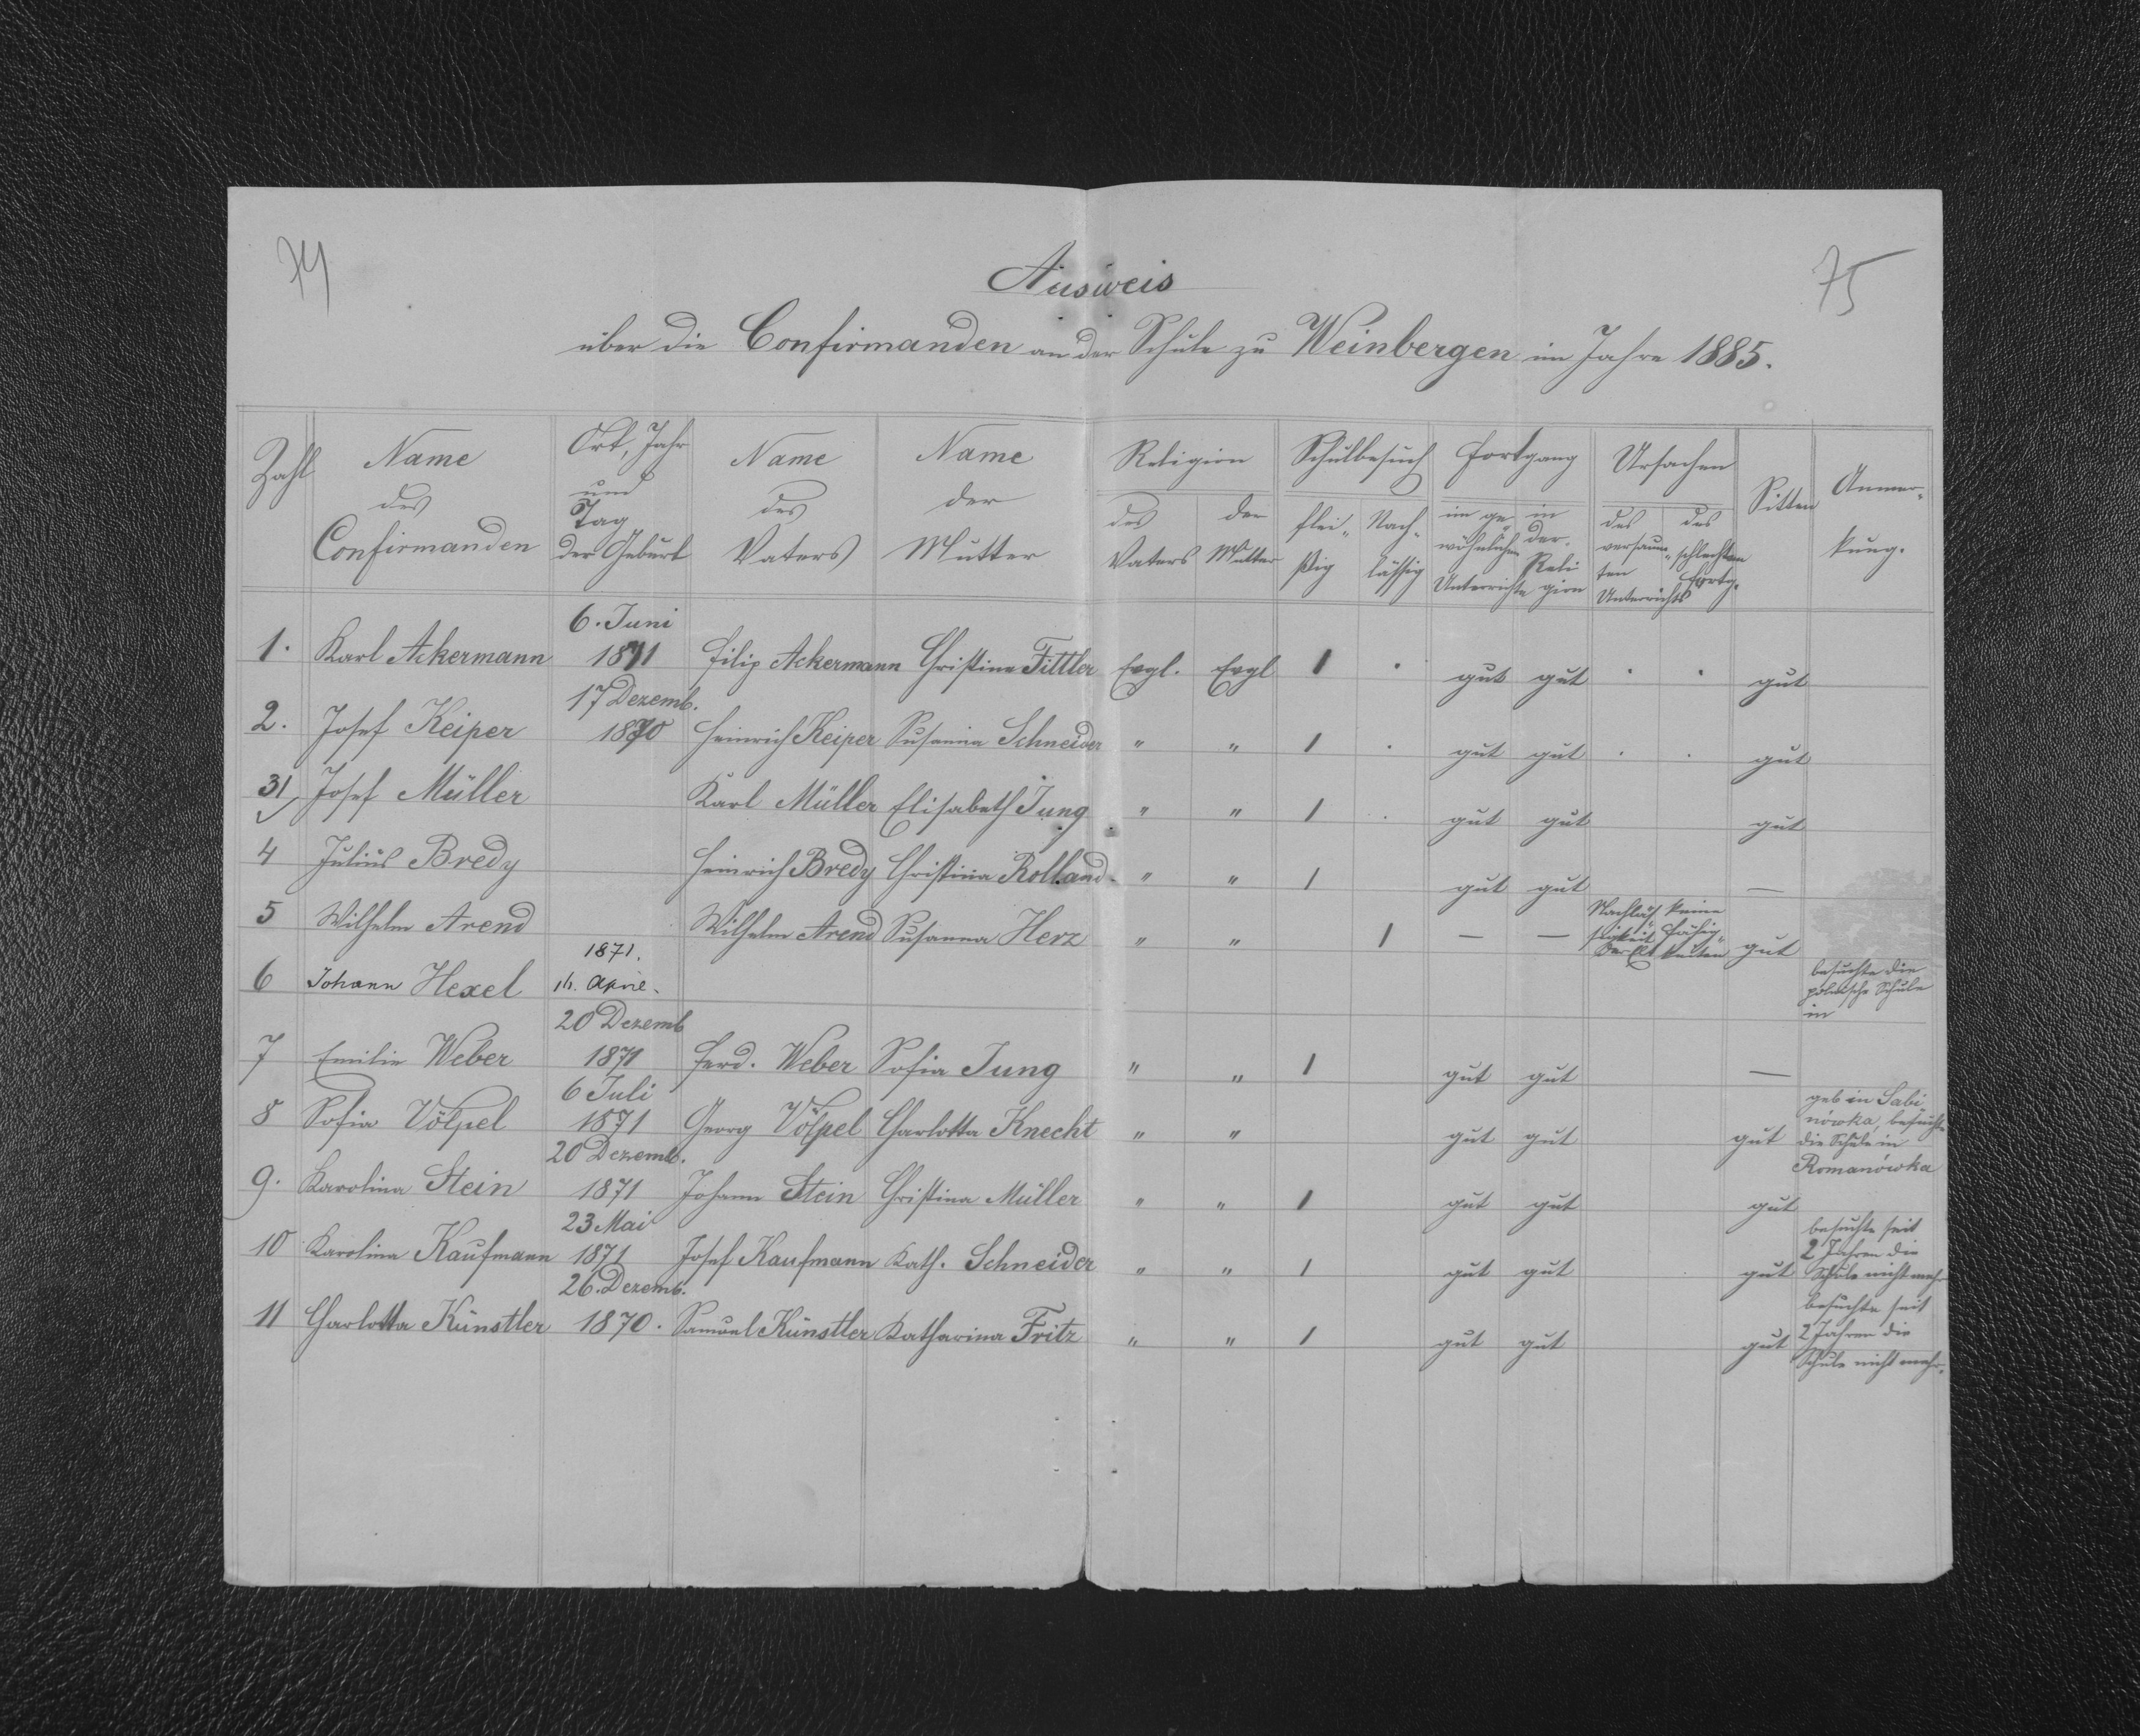 74
75
Ausweis
über die Confirmanden an der Schule zu Weinbergen im Jahre 1885.
Zahl
Name des Confirmanden
Ort, Jahr und Tag der Geburt
Name des Vaters
Name der Mutter
Religion
des Vaters
der Mutter
Schulbesuch
flei„ ßig
Nach„ lässig
Fortgang
im ge wöhnlichen Unterrichte
in der Reli gion
Ursachen
des versäum„ ten Unterrichts
des schlechten Fortg.
Sitten
Anmer„ kung.
1. Karl Ackermann 6. Juni 1871 Filip Ackermann Christine Fittler Evgl. Evgl 1 . gut gut . . gut
2. Josef Keiper 17 Dezemb. 1870 Heinrich Keiper Susanna Schneider " " 1 . gut gut . . gut
3 Josef Müller Karl Müller Elisabeth Jung " " 1 . gut gut gut
4 Julius Bredy Heinrich Bredy Christina Rolland " " 1 gut gut —
5 Wilhelm Arend Wilhelm Arend Susanna Herz " " 1 — — Nachläs„ sigkeit der Elt keine Fähig„ keiten gut
6 Johann Hexel 1871. April besuchte die polnische Schule in
7 Emilie Weber 20 Dezemb 1871 Ferd. Weber Sofia Jung " " 1 gut gut —
8 Sofia Völpel 6 Juli 1871 Georg Völpel Charlotta Knecht " " gut gut gut geb in Sabi nówka, besuchte die Schule in Romanówka
9. Karolina Stein 20 Dezemb. 1871 Johann Stein Christina Müller " " 1 gut gut gut
10 Karolina Kaufmann 23 Mai 1871 Josef Kaufmann Kath. Schneider " " 1 gut gut gut besuchte seit 2 Jahren die Schule nicht mehr
11 Charlotta Künstler 26. Dezemb. 1870. Samuel Künstler Katharina Fritz " " 1 gut gut gut besuchte seit 2 Jahren die Schule nicht mehr.